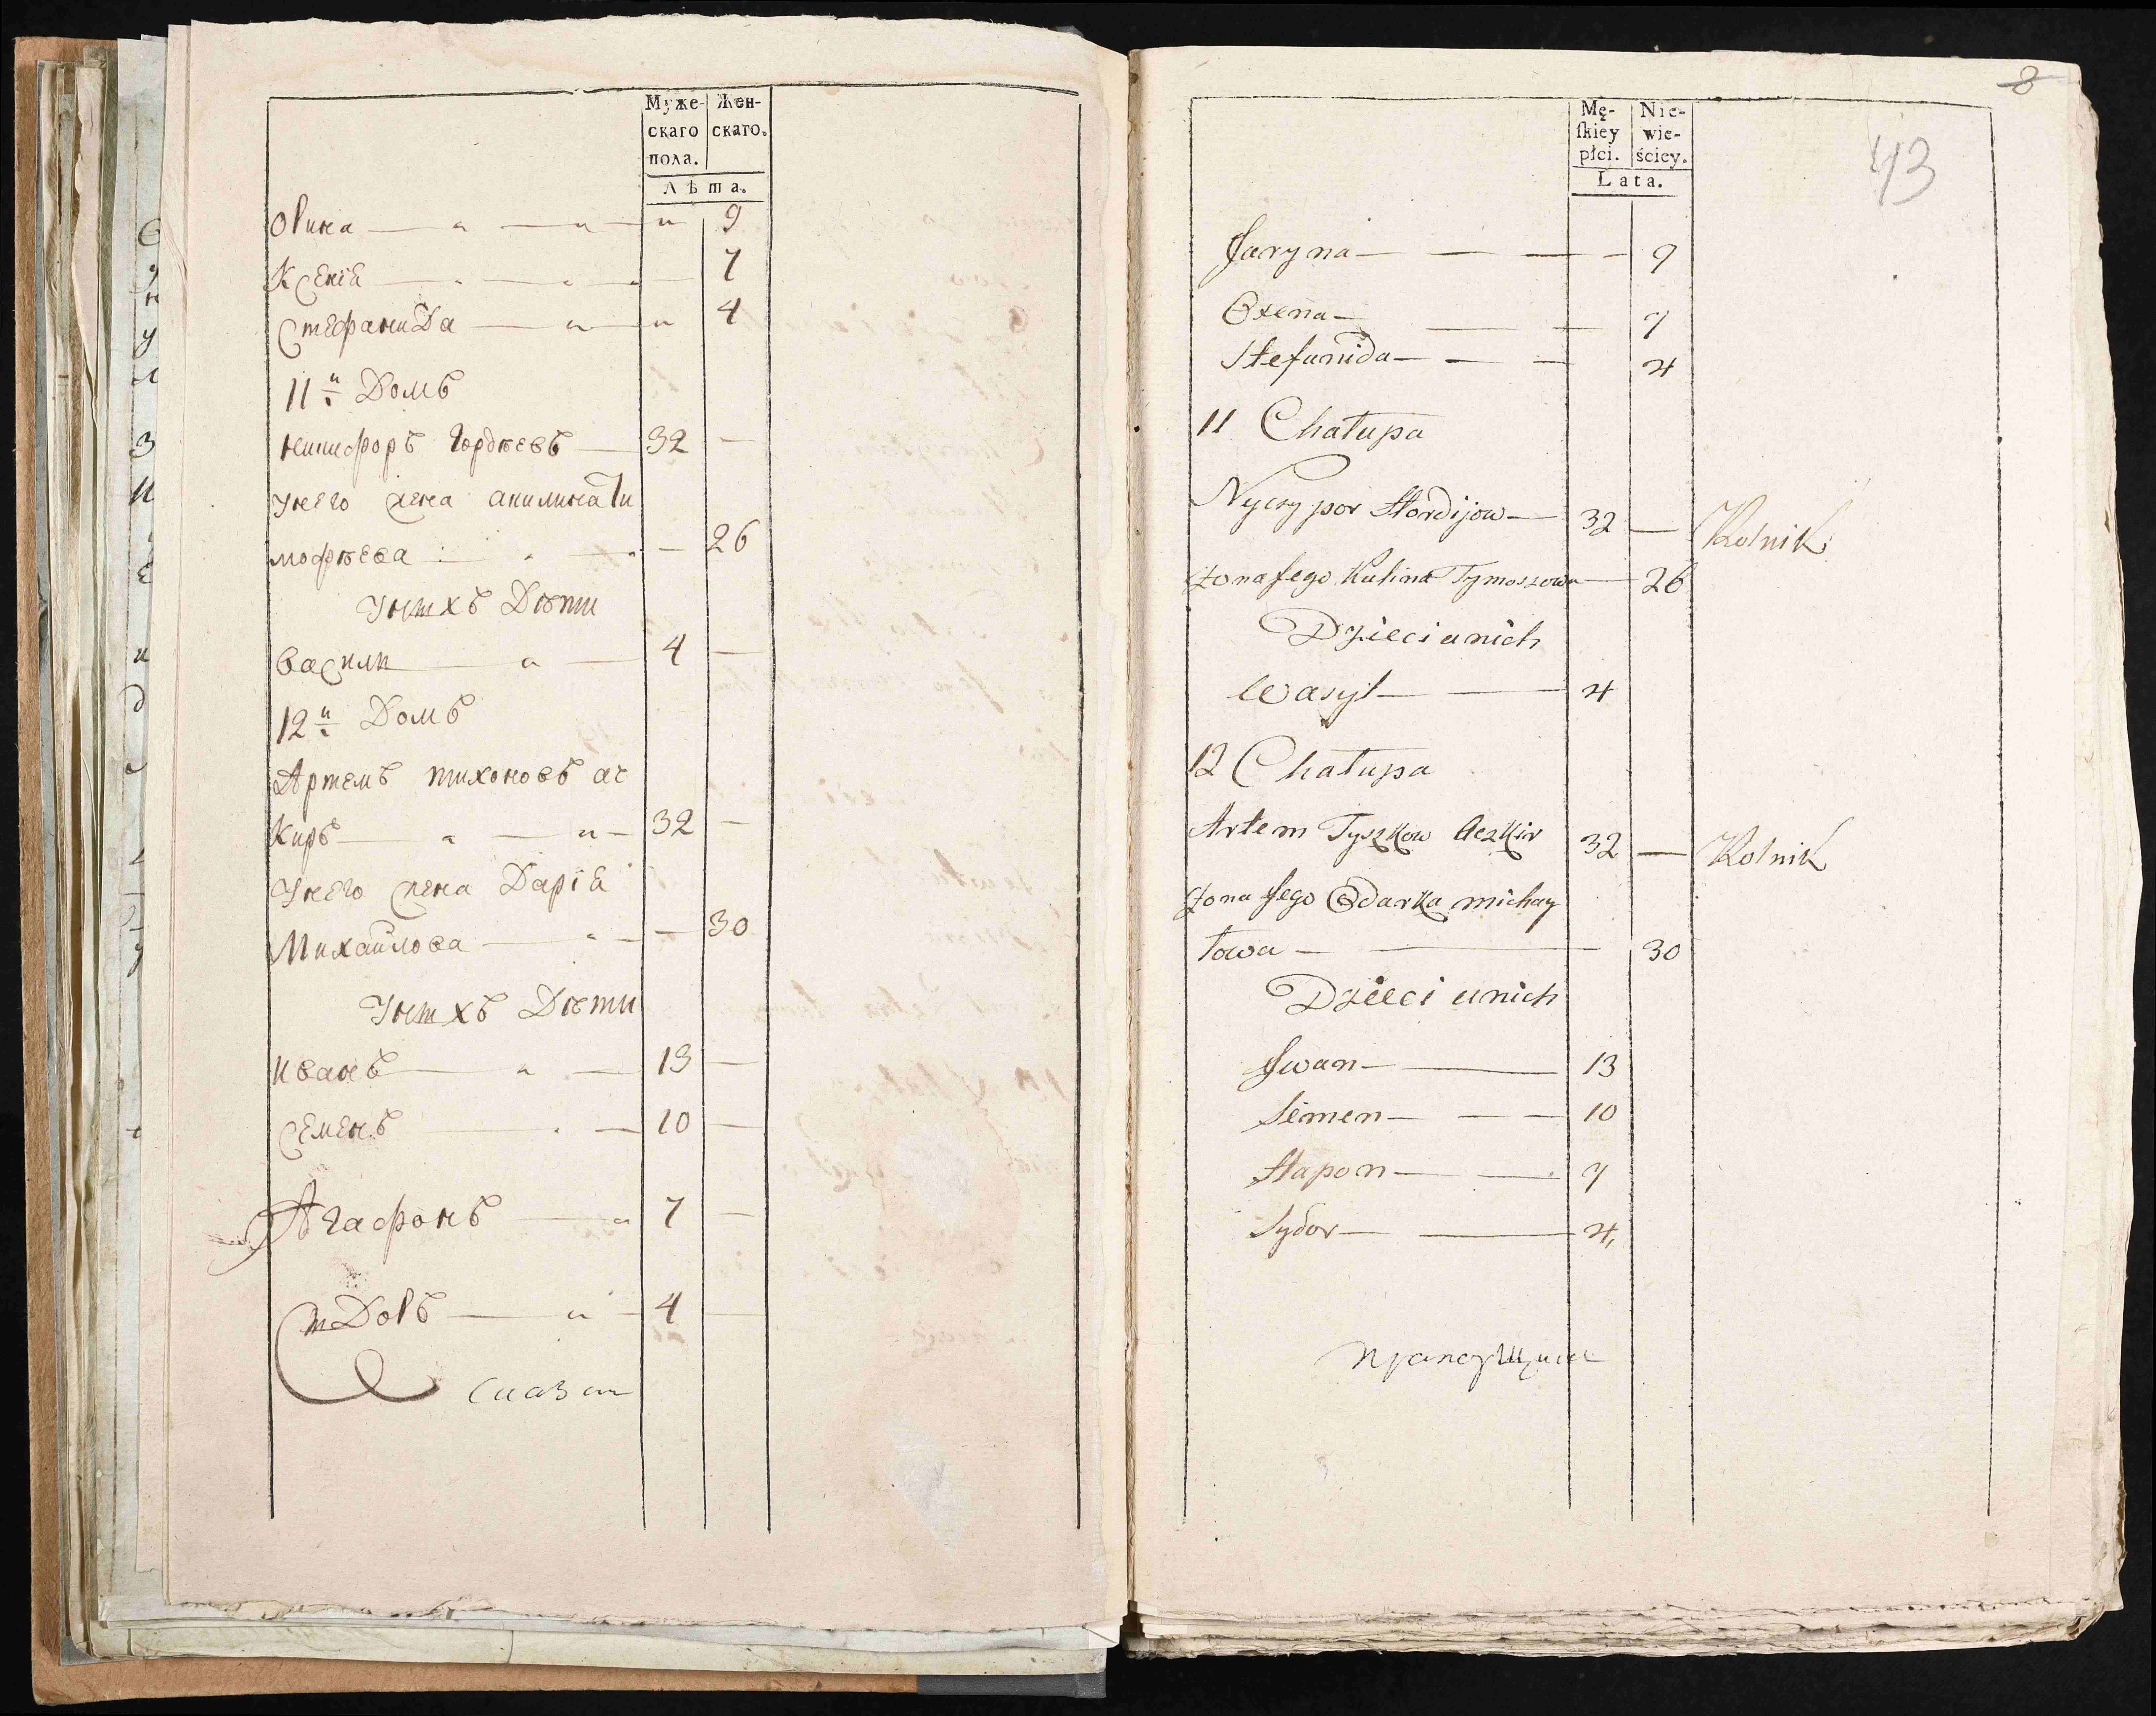 Муже-
скаго
пола.
Жен-
скаго.
Лѣта.
Орина 9
Ксеніѣ 7
Стефанида 4
11й Домъ
никифоръ Гордѣевъ 32
Унего жена акилина Ти
мофѣева 26
Унихъ Дѣти
васили 4
12й Домъ
Артемъ тихоновъ ач
киръ 32
Унего жена Даріѣ
Михаилова 30
Унихъ Дѣти
иванъ 13
семенъ 10
Агафонъ 7
сидоръ 4
8
43
Mę-
skiey
płci.
Nie-
wie-
ściey.
Lata.
Jaryna 9
Oxena 7
Stefanida 4
11 Chałupa
Nyczypor Hordijow 32 — Rolnik
Żona Jego Kulina Tymoszowa 26
Dzieci u nich
Wasyl 4
12 Chałupa
Artem Tyszkow Aczkir 32 — Rolnik
Żona Jego Odarka michay
łowa 30
Dzieci u nich
Jwan 13
Semen 10
Hapon 7
Sydor 4